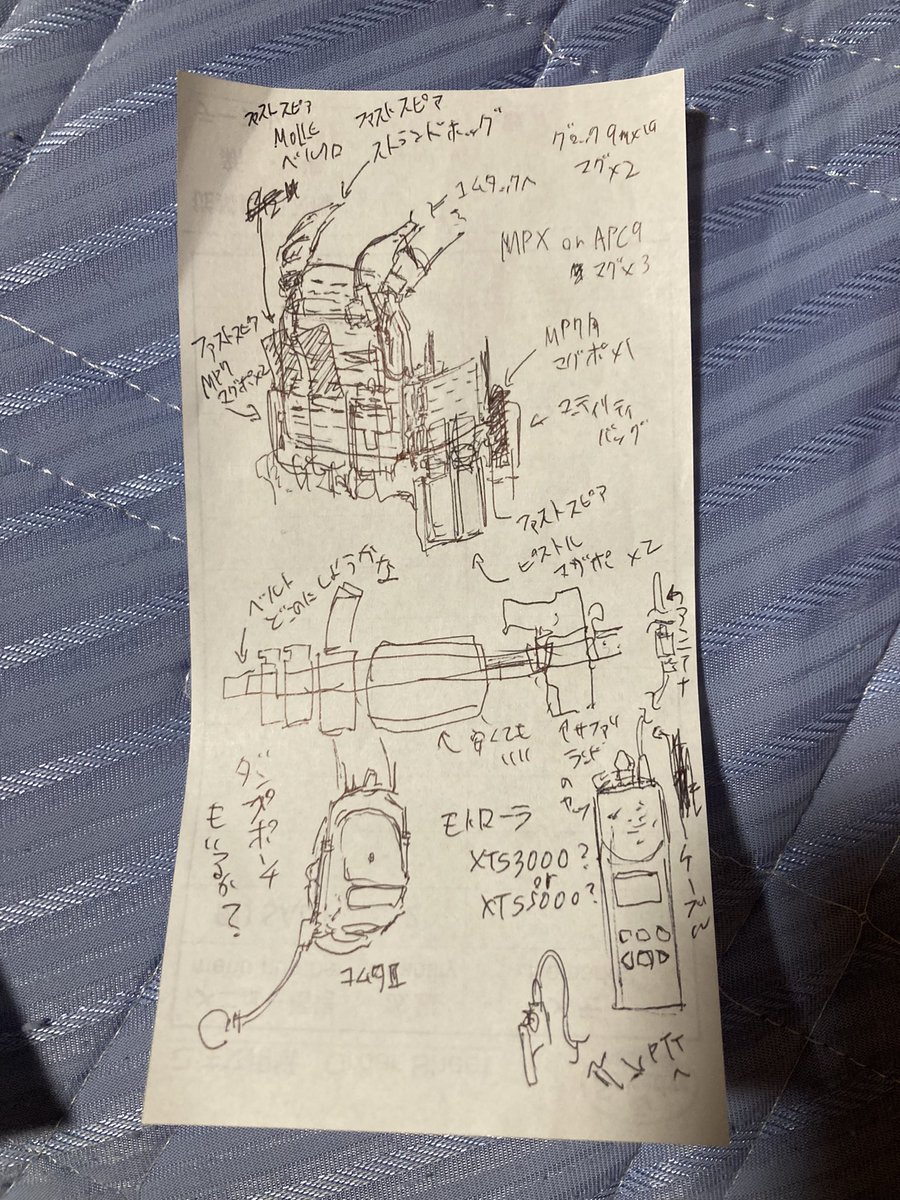 ファストスピア
MOLLE
ベルクロ
ファストスピア
ストランドホッグ
グロック9mm
マグ×2
コムタックへ
MPX or APC9
マグ×3
ファストスピア
MP7
マグポ×2
MP7用
マグポ×1
ユーティリティ
ファストスピア
ピストル
マガポ×2
ベルト
どこのにしようかな
アンテナ
安くても
いい
サファリ
ランド
の
ヤツ
ダンプポーチ
もいるか？
モトローラ
XTS3000?
or
XTS5000?
ケーブル
コムタII
PTT
へ